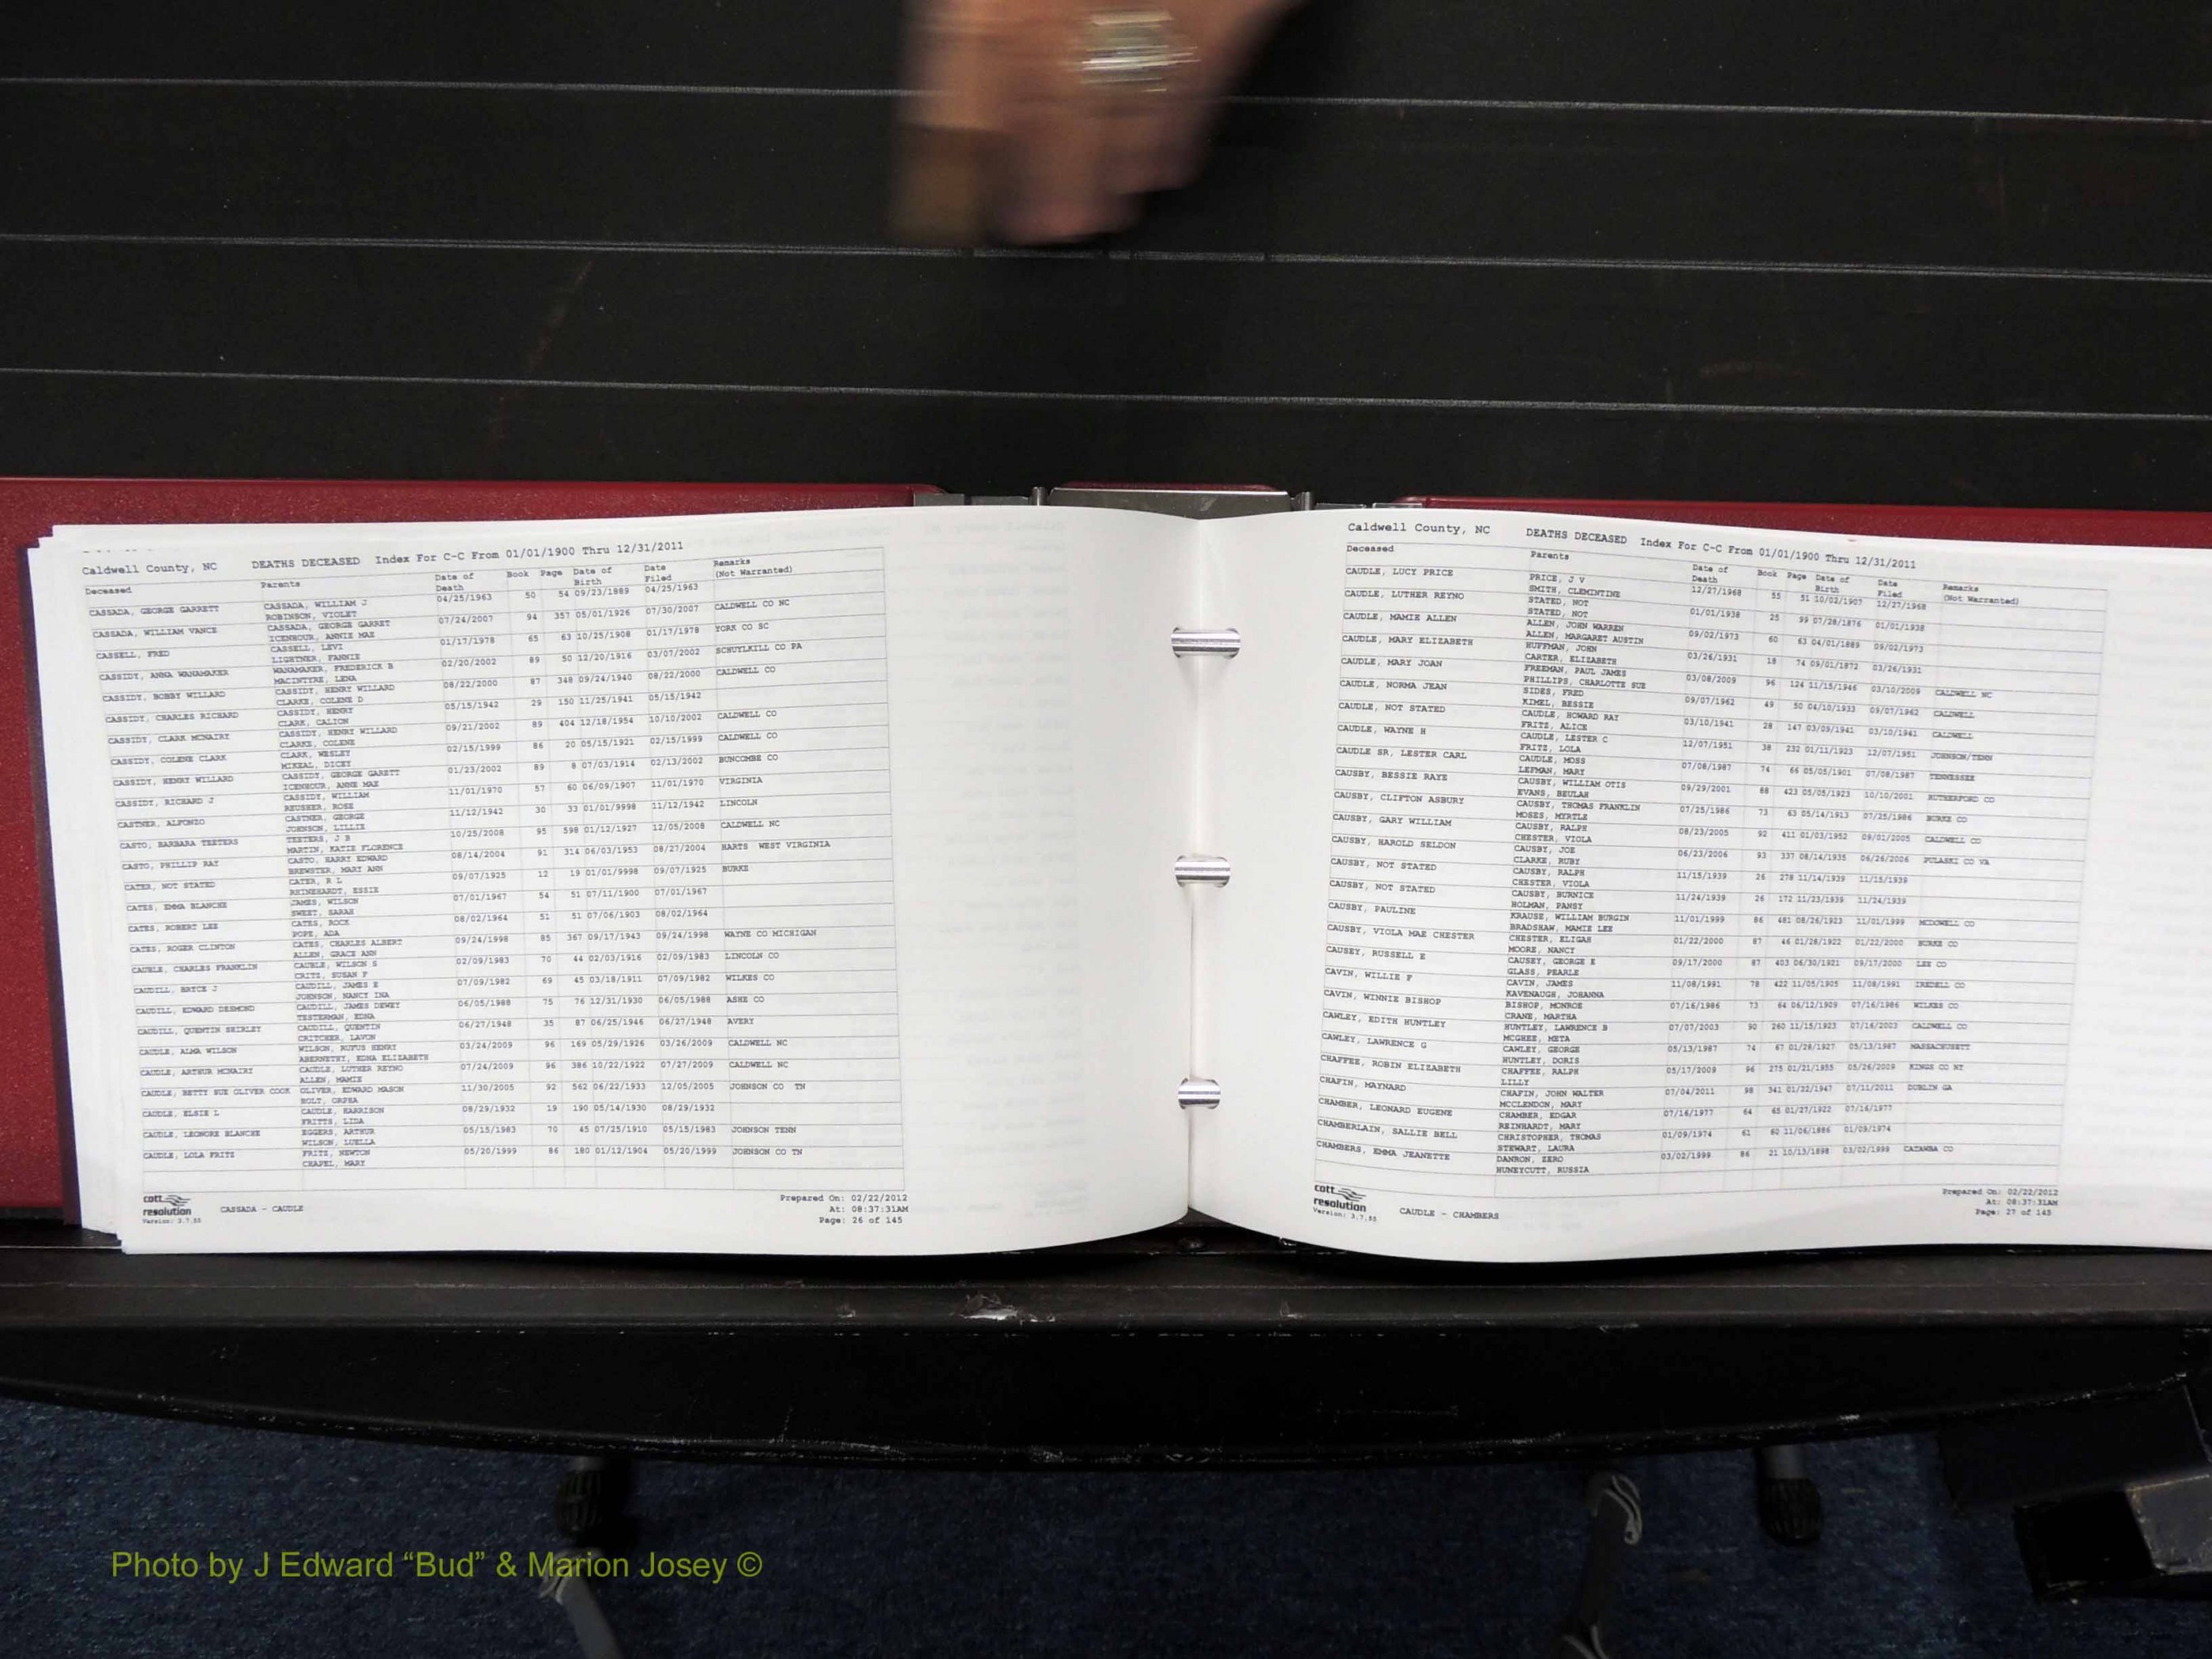 Caldwell County, NC DEATHS DECEASED Index For C-C From 01/01/1900 Thru 12/31/2011
Deceased Parents Date of Death Book Page Date of Birth Date Filed Remarks (Not Warranted)
CASSADA, GEORGE GARRETT CASSADA, WILLIAM J 04/25/1963 50 54 09/23/1889 04/25/1963
ROBINSON, VIOLET
CASSADA, WILLIAM VANCE CASSADA, GEORGE GARRET 07/24/2007 94 357 05/01/1926 07/30/2007 CALDWELL CO NC
ICENHOUR, ANNIE MAE
CASSELL, FRED CASSELL, LEVI 01/17/1978 65 63 10/25/1908 01/17/1978 YORK CO SC
LIGHTNER, FANNIE
CASSIDY, ANNA WANAMAKER WANAMAKER, FREDERICK B 02/20/2002 89 50 12/20/1916 03/07/2002 SCHUYLKILL CO PA
MACINTYRE, LENA
CASSIDY, BOBBY WILLARD CASSIDY, HENRY WILLARD 08/22/2000 87 348 09/24/1940 08/22/2000 CALDWELL CO
CLARKE, COLENE D
CASSIDY, CHARLES RICHARD CASSIDY, HENRY 05/15/1942 29 150 11/25/1941 05/15/1942
CLARK, CALION
CASSIDY, CLARK MCNAIRY CASSIDY, HENRY WILLARD 09/21/2002 89 404 12/18/1954 10/10/2002 CALDWELL CO
CLARKE, COLENE
CASSIDY, COLENE CLARK CLARK, WESLEY 02/15/1999 86 20 05/15/1921 02/15/1999 CALDWELL CO
MIKEAL, DICEY
CASSIDY, HENRY WILLARD CASSIDY, GEORGE GARETT 01/23/2002 89 8 07/03/1914 02/13/2002 BUNCOMBE CO
ICENHOUR, ANNE MAE
CASSIDY, RICHARD J CASSIDY, WILLIAM 11/01/1970 57 60 06/09/1907 11/01/1970 VIRGINIA
REUSHER, ROSE
CASTNER, ALFONZO CASTNER, GEORGE 11/12/1942 30 33 01/01/9998 11/12/1942 LINCOLN
JOHNSON, LILLIE
CASTO, BARBARA TEETERS TEETERS, J B 10/25/2008 95 598 01/12/1927 12/05/2008 CALDWELL NC
MARTIN, KATIE FLORENCE
CASTO, PHILLIP RAY CASTO, HARRY EDWARD 08/14/2004 91 314 06/03/1953 08/27/2004 HARTS WEST VIRGINIA
BREWSTER, MARY ANN
CATER, NOT STATED CATER, R L 09/07/1925 12 19 01/01/9998 09/07/1925 BURKE
REINEHARDT, ESSIE
CATES, EMMA BLANCHE JAMES, WILSON 07/01/1967 54 51 07/11/1900 07/01/1967
SWEET, SARAH
CATES, ROBERT LEE CATES, ROCK 08/02/1964 51 51 07/06/1903 08/02/1964
POPE, ADA
CATES, ROGER CLINTON CATES, CHARLES ALBERT 09/24/1998 85 367 09/17/1943 09/24/1998 WAYNE CO MICHIGAN
ALLEN, GRACE ANN
CAUBLE, CHARLES FRANKLIN CAUBLE, WILSON S 02/09/1983 70 44 02/03/1916 02/09/1983 LINCOLN CO
CRITZ, SUSAN F
CAUDILL, BRYCE J CAUDILL, JAMES E 07/09/1982 69 45 03/18/1911 07/09/1982 WILKES CO
JOHNSON, NANCY INA
CAUDILL, EDWARD DESMOND CAUDILL, JAMES DEWEY 06/05/1988 75 76 12/31/1930 06/05/1988 ASHE CO
TESTERMAN, EDNA
CAUDILL, QUENTIN SHIRLEY CAUDILL, QUENTIN 06/27/1948 35 87 06/25/1946 06/27/1948 AVERY
CRITCHER, LAVON
CAUDLE, ALMA WILSON WILSON, RUFUS HENRY 03/24/2009 96 169 05/29/1926 03/26/2009 CALDWELL NC
ABERNETHY, EDNA ELIZABETH
CAUDLE, ARTHUR MCNAIRY CAUDLE, LUTHER REYNO 07/24/2009 96 386 10/22/1922 07/27/2009 CALDWELL NC
ALLEN, MAMIE
CAUDLE, BETTY SUE OLIVER COOK OLIVER, EDWARD MASON 11/30/2005 92 562 06/22/1933 12/05/2005 JOHNSON CO TN
HOLT, ORPHA
CAUDLE, ELSIE L CAUDLE, HARRISON 08/29/1932 19 190 05/14/1930 08/29/1932
FRITTS, LIDA
CAUDLE, LEONORE BLANCHE EGGERS, ARTHUR 05/15/1983 70 45 07/25/1910 05/15/1983 JOHNSON TENN
WILSON, LUELLA
CAUDLE, LOLA FRITZ FRITZ, NEWTON 05/20/1999 86 180 01/12/1904 05/20/1999 JOHNSON CO TN
CHAPEL, MARY
cott resolution
Version: 3.7.55
CASSADA - CAUDLE
Prepared On: 02/22/2012
At: 08:37:31AM
Page: 26 of 145
Caldwell County, NC DEATHS DECEASED Index For C-C From 01/01/1900 Thru 12/31/2011
Deceased Parents Date of Death Book Page Date of Birth Date Filed Remarks (Not Warranted)
CAUDLE, LUCY PRICE PRICE, J V 12/27/1968 55 51 10/02/1907 12/27/1968
SMITH, CLEMINTINE
CAUDLE, LUTHER REYNO STATED, NOT 01/01/1938 25 99 07/28/1876 01/01/1938
STATED, NOT
CAUDLE, MAMIE ALLEN ALLEN, JOHN WARREN 09/02/1973 60 63 04/01/1889 09/02/1973
ALLEN, MARGARET AUSTIN
CAUDLE, MARY ELIZABETH HUFFMAN, JOHN 03/26/1931 18 74 09/01/1872 03/26/1931
CARTER, ELIZABETH
CAUDLE, MARY JOAN FREEMAN, PAUL JAMES 03/08/2009 96 124 11/15/1946 03/10/2009 CALDWELL NC
PHILLIPS, CHARLOTTE SUE
CAUDLE, NORMA JEAN SIDES, FRED 09/07/1962 49 50 04/10/1933 09/07/1962 CALDWELL
KIMEL, BESSIE
CAUDLE, NOT STATED CAUDLE, HOWARD RAY 03/10/1941 28 147 03/09/1941 03/10/1941 CALDWELL
FRITZ, ALICE
CAUDLE, WAYNE H CAUDLE, LESTER C 12/07/1951 38 232 01/11/1923 12/07/1951 JOHNSON/TENN
FRITZ, LOLA
CAUDLE SR, LESTER CARL CAUDLE, MOSS 07/08/1987 74 66 05/05/1901 07/08/1987 TENNESSEE
LEFMAN, MARY
CAUSBY, BESSIE RAYE CAUSBY, WILLIAM OTIS 09/29/2001 88 423 05/05/1923 10/10/2001 RUTHERFORD CO
EVANS, BEULAH
CAUSBY, CLIFTON ASBURY CAUSBY, THOMAS FRANKLIN 07/25/1986 73 63 05/14/1913 07/25/1986 BURKE CO
MOSES, MYRTLE
CAUSBY, GARY WILLIAM CAUSBY, RALPH 08/23/2005 92 411 01/03/1952 09/01/2005 CALDWELL CO
CHESTER, VIOLA
CAUSBY, HAROLD SELDON CAUSBY, JOE 06/23/2006 93 337 08/14/1935 06/26/2006 PULASKI CO VA
CLARKE, RUBY
CAUSBY, NOT STATED CAUSBY, RALPH 11/15/1939 26 278 11/14/1939 11/15/1939
CHESTER, VIOLA
CAUSBY, NOT STATED CAUSBY, BURNICE 11/24/1939 26 172 11/23/1939 11/24/1939
HOLMAN, PANSY
CAUSBY, PAULINE KRAUSE, WILLIAM BURGIN 11/01/1999 86 481 08/26/1923 11/01/1999 MCDOWELL CO
BRADSHAW, MAMIE LEE
CAUSBY, VIOLA MAE CHESTER CHESTER, ELIGAH 01/22/2000 87 46 01/28/1922 01/22/2000 BURKE CO
MOORE, NANCY
CAUSEY, RUSSELL E CAUSEY, GEORGE E 09/17/2000 87 403 06/30/1921 09/17/2000 LEE CO
GLASS, PEARLE
CAVIN, WILLIE F CAVIN, JAMES 11/08/1991 78 422 11/05/1905 11/08/1991 IREDELL CO
KAVENAUGH, JOHANNA
CAVIN, WINNIE BISHOP BISHOP, MONROE 07/16/1986 73 64 06/12/1909 07/16/1986 WILKES CO
CRANE, MARTHA
CAWLEY, EDITH HUNTLEY HUNTLEY, LAWRENCE B 07/07/2003 90 260 11/15/1923 07/16/2003 CALDWELL CO
MCGHEE, META
CAWLEY, LAWRENCE G CAWLEY, GEORGE 05/13/1987 74 67 01/28/1927 05/13/1987 MASSACHUSETT
HUNTLEY, DORIS
CHAFFEE, ROBIN ELIZABETH CHAFFEE, RALPH 05/17/2009 96 275 01/21/1955 05/26/2009 KINGS CO NY
LILLY
CHAFIN, MAYNARD CHAFIN, JOHN WALTER 07/04/2011 98 341 01/22/1947 07/11/2011 DUBLIN GA
MCCLENDON, MARY
CHAMBER, LEONARD EUGENE CHAMBER, EDGAR 07/16/1977 64 65 01/27/1922 07/16/1977
REINHARDT, MARY
CHAMBERLAIN, SALLIE BELL CHRISTOPHER, THOMAS 01/09/1974 61 60 11/06/1886 01/09/1974
STEWART, LAURA
CHAMBERS, EMMA JEANETTE DANRON, ZERO 03/02/1999 86 21 10/13/1898 03/02/1999 CATAWBA CO
HUNEYCUTT, RUSSIA
cott resolution
Version: 3.7.55
CAUDLE - CHAMBERS
Prepared On: 02/22/2012
At: 08:37:31AM
Page: 27 of 145
Photo by J Edward “Bud” & Marion Josey ©